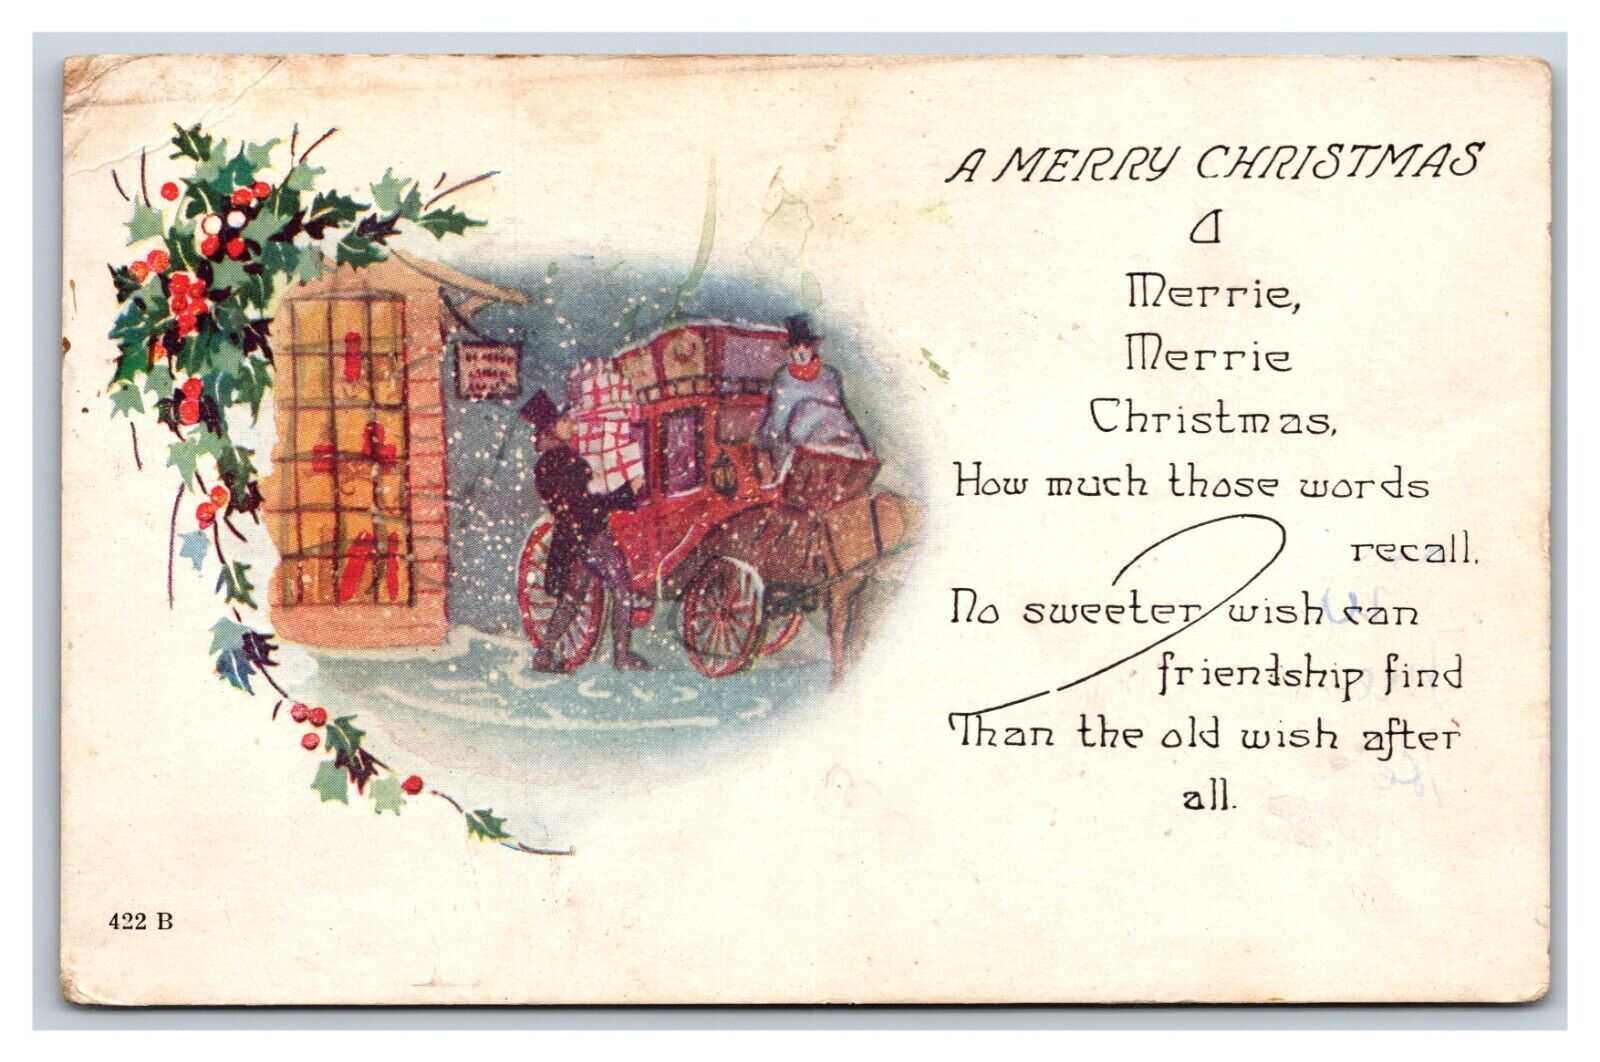 A MERRY CHRISTMAS
A
Merrie,
Merrie
Christmas,
How much those words
recall.
No sweeter wish can
friendship find
Than the old wish after
all.
422 B